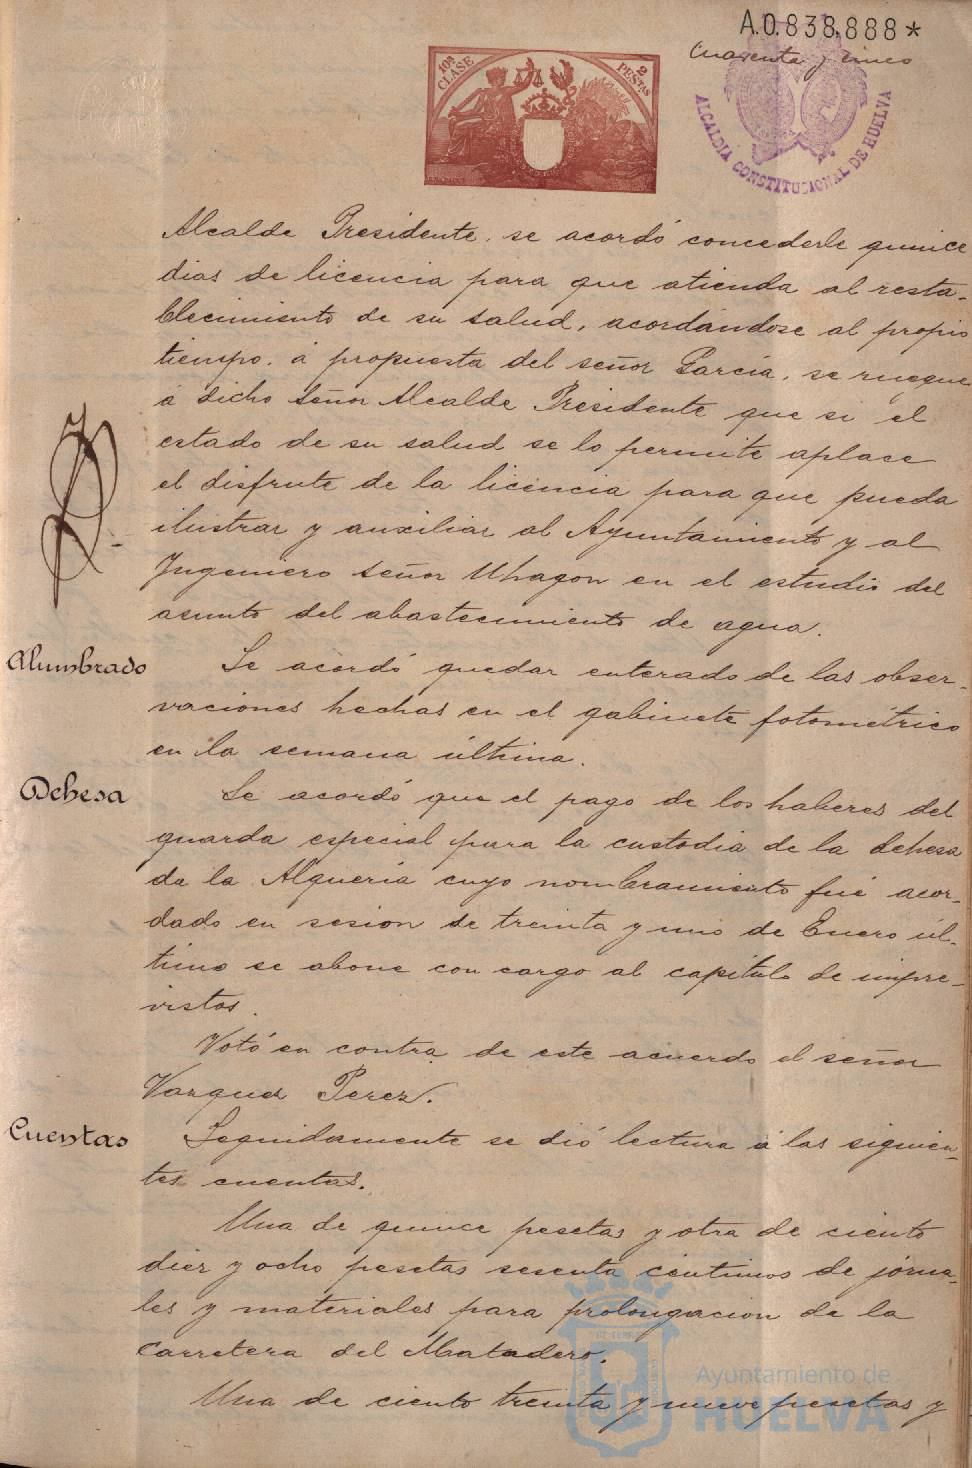 A.0.838,888*
Cuarenta y cinco
10ª CLASE
2 PESTAS
ALCALDIA CONSTITUCIONAL DE HUELVA
Alcalde Presidente, se acordó concederle quince
dias de licencia para que atienda al resta-
blecimiento de su salud, acordándose al propio
tiempo, á propuesta del señor García, se ruegue
á dicho Señor Alcalde Presidente que si el
estado de su salud se lo permite aplace
el disfrute de la licencia para que pueda
ilustrar y auxiliar al Ayuntamiento y al
Ingeniero Señor Uhagon en el estudio del
asunto del abastecimiento de agua.
Alumbrado
Se acordó quedar enterado de las obser-
vaciones hechas en el gabinete fotométrico
en la semana última.
Dehesa
Se acordó que el pago de los haberes del
guarda especial para la custodia de la dehesa
de la Alqueria cuyo nombramiento fué acor-
dado en sesion de treinta y uno de Enero úl-
timo se abone con cargo al capítulo de impre-
vistos.
Votó en contra de este acuerdo el señor
Vazquez Perez.
Cuentas
Seguidamente se dió lectura á las siguien-
tes cuentas.
Una de quince pesetas y otra de ciento
diez y ocho pesetas sesenta céntimos de jorna-
les y materiales para prolongacion de la
Carretera del Matadero.
Una de ciento treinta y nueve pesetas y
Ayuntamiento de
HUELVA